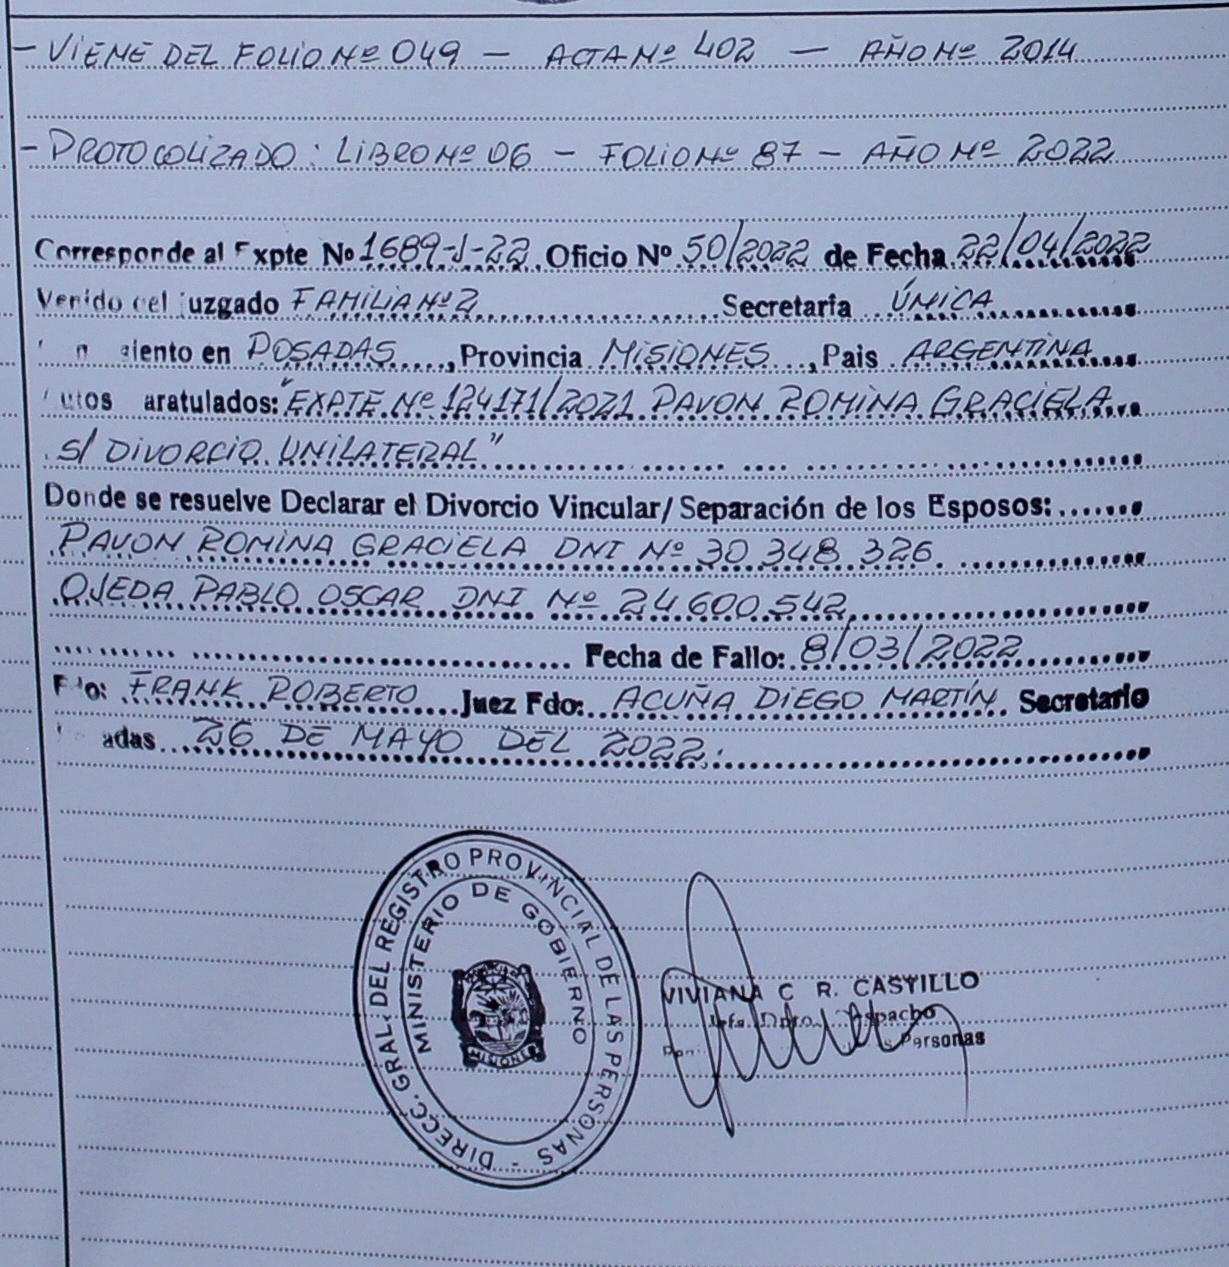 - VIENE DEL FOLIO Nº 049 - ACTA Nº 402 - AÑO Nº 2014
- PROTOCOLIZADO: LIBRO Nº 06 - FOLIO Nº 87 - AÑO Nº 2022
Corresponde al Expte Nº 1689-J-22 Oficio Nº 50/2022 de Fecha 22/04/2022
Venido del juzgado FAMILIA Nº 2 Secretaría ÚNICA
iento en POSADAS, Provincia MISIONES, Pais ARGENTINA
utos aratulados: "EXPTE Nº 124171/2021 PAVON ROMINA GRACIELA
S/ DIVORCIO UNILATERAL"
Donde se resuelve Declarar el Divorcio Vincular/ Separación de los Esposos:
PAVON ROMINA GRACIELA DNI Nº 30.348.326
OJEDA PABLO OSCAR DNI Nº 24.600.542
Fecha de Fallo: 8/03/2022
Fdo: FRANK ROBERTO Juez Fdo: ACUÑA DIEGO MARTÍN Secretario
adas 26 DE MAYO DEL 2022.
DIRECC. GRAL. DEL REGISTRO PROVINCIAL DE LAS PERSONAS -
MINISTERIO DE GOBIERNO
MISIONES
VIVIANA C. R. CASTILLO
Jefa Dpto. Despacho
Personas